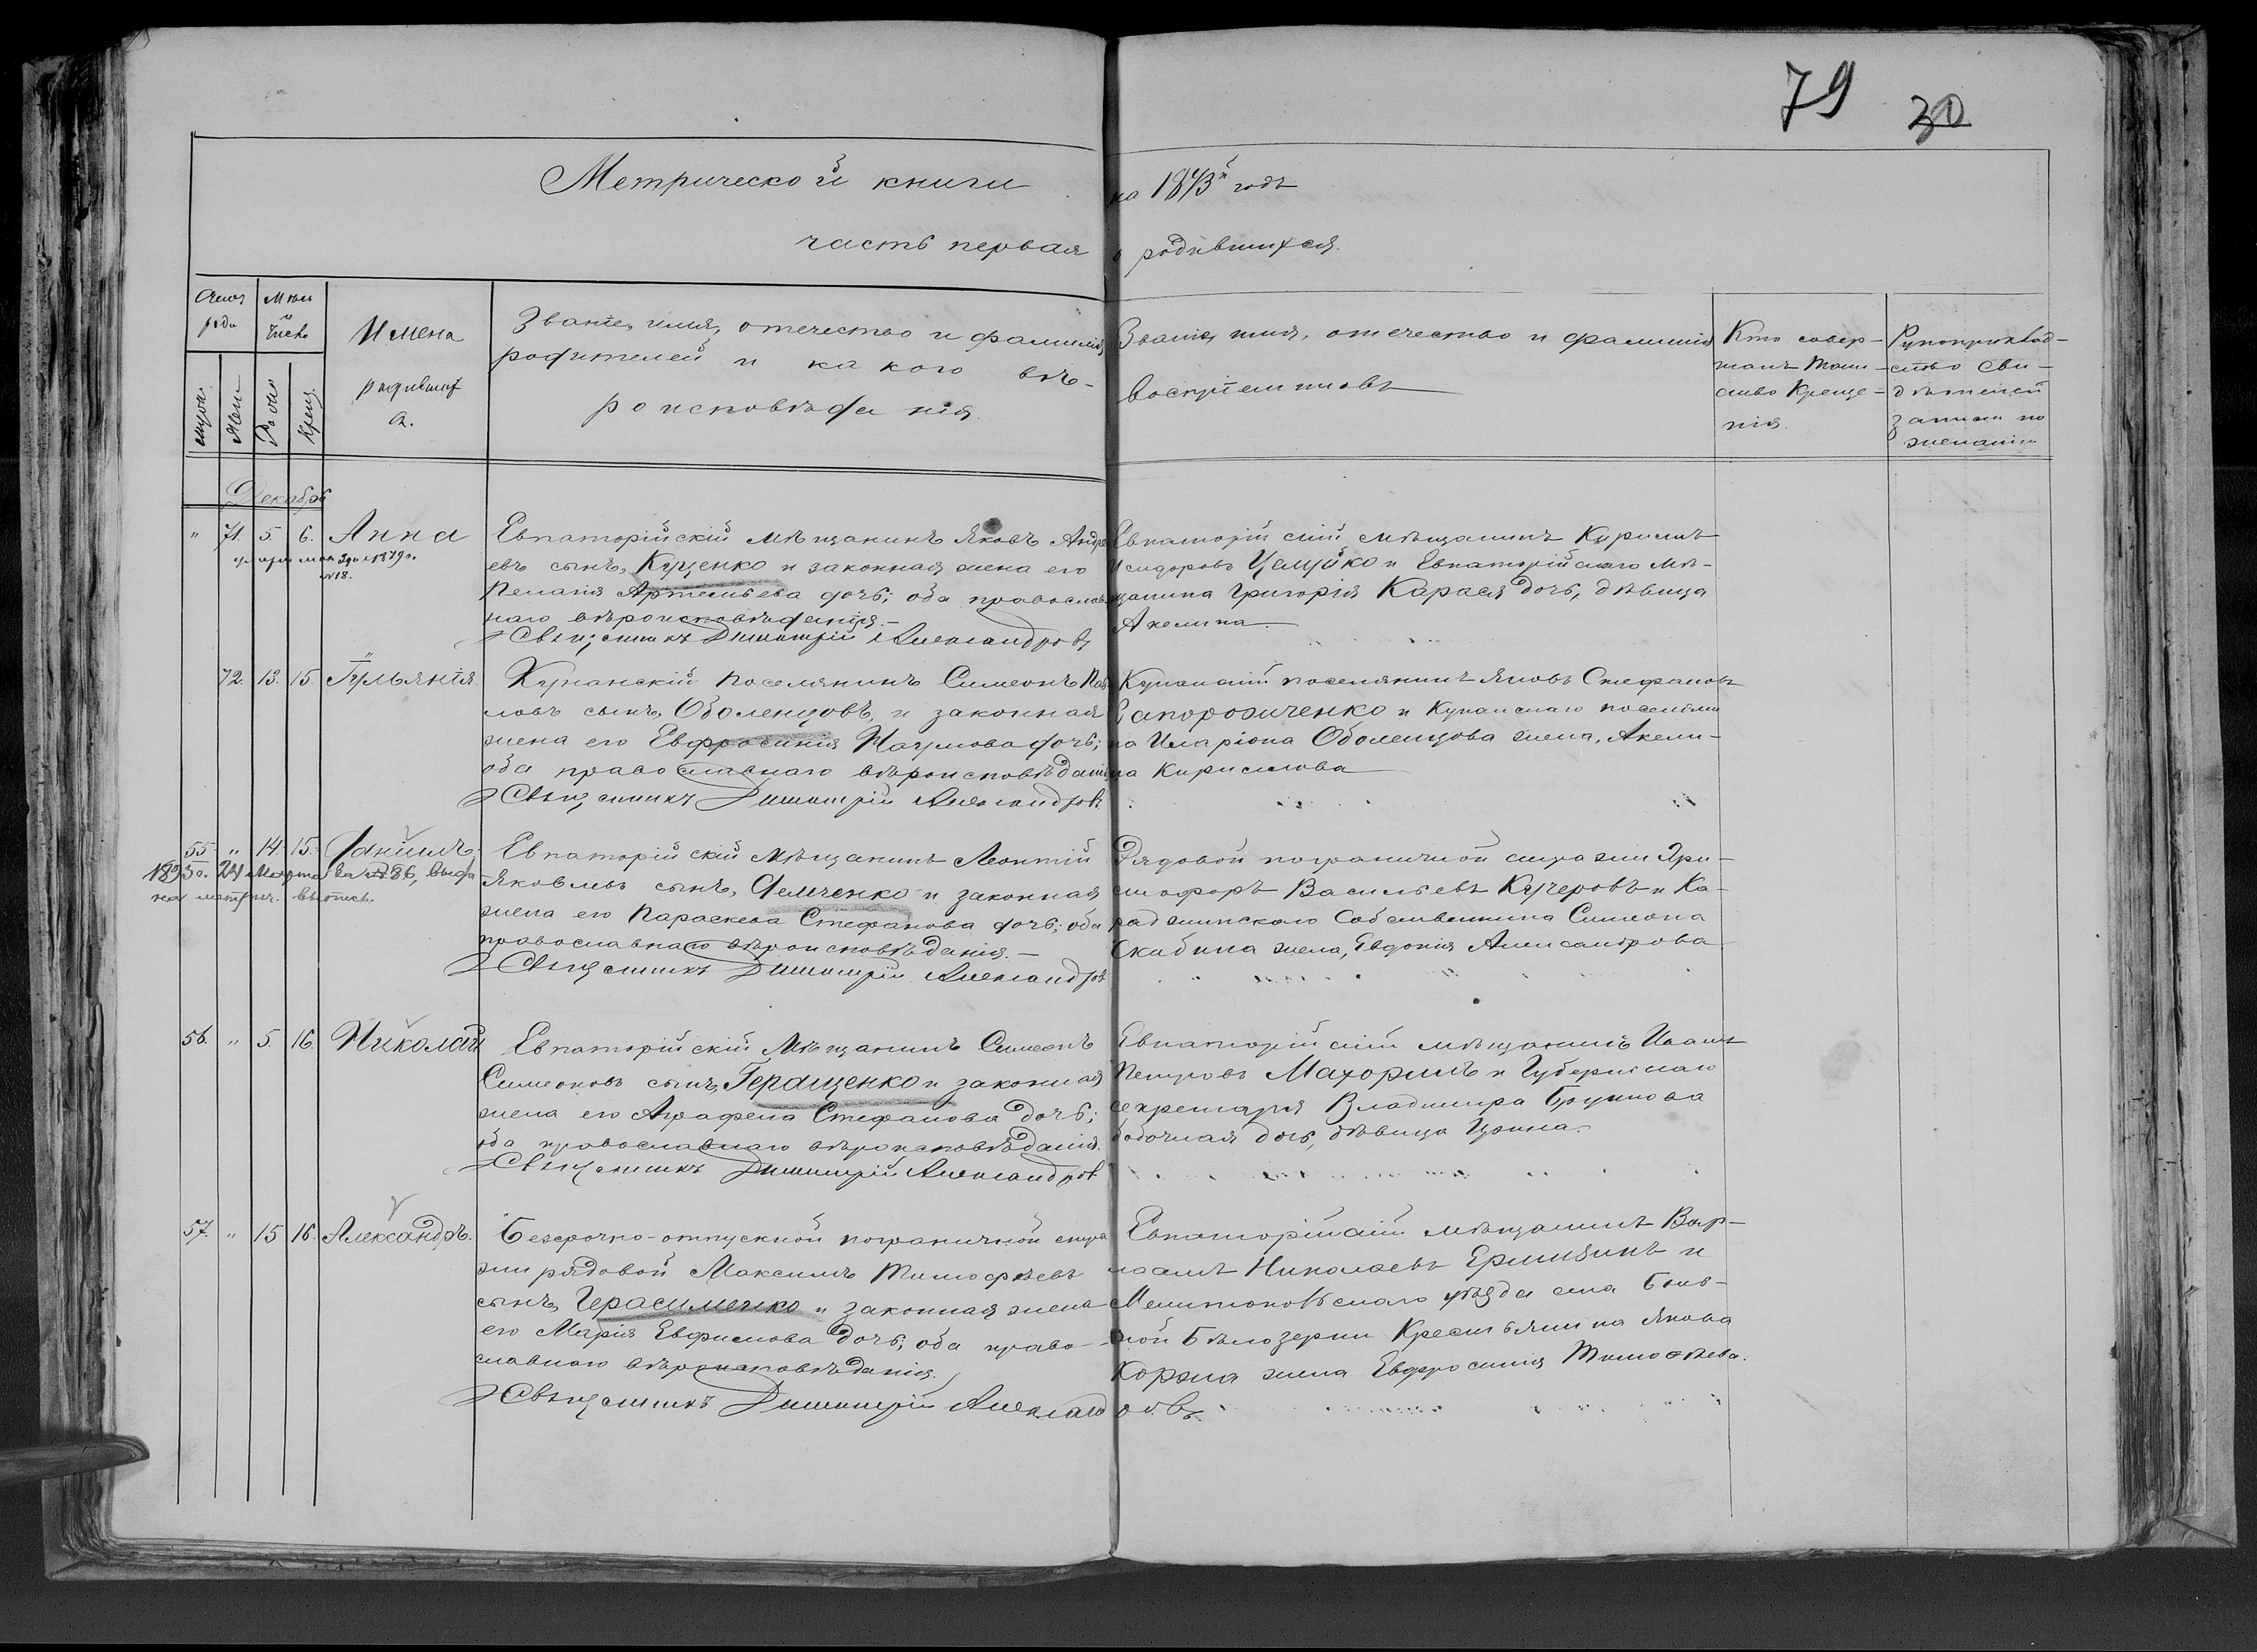 79 30
Метрической книги на 1873й годъ
часть первая о родившихся.
Счетъ родив.
Мѣсяцъ и число
Имена родившихся.
Званіе, имя, отечество и фамилія
родителей и какого вѣ-
роисповѣданія.
Званіе, имя, отечество и фамилія
воспріемниковъ
Кто совер-
шалъ Таин-
ство Креще-
нія.
Рукоприклад-
ство сви-
дѣтелей
записи по
желанію
Мужс.
Жен.
Рожд.
Крещ.
Декабрь
" 71. 5. 6. Анна
1879 г.
№18.
Евпаторійскій мѣщанинъ Яковъ Андре
евъ сынъ, Куценко и законная жена его
Пелагія Артемьева дочь; оба православ
наго вѣроисповѣданія.—
Священникъ Димитрій Александровъ
Евпаторійскій мѣщанинъ Кирилъ
Исидоровъ Цемуйко и Евпаторійскаго мѣ-
щанина Григорія Карася дочь, дѣвица
Акелина.
" 72. 13. 15. Іуліанія.
Кунанскій поселянинъ Симеонъ Пав
ловъ сынъ, Оболенцовъ, и законная
жена его Евфросинія Наумова дочь;
оба православнаго вѣроисповѣданія
Священникъ Димитрій Александровъ
Кунанскій поселянинъ Яковъ Стефановъ
Запорожченко и Кунанскаго поселяни
на Иларіона Оболенцова жена, Акели-
на Кирилова
55 " 14. 15. Даніилъ.
1895 г. 24 Марта за №86, выда
на метрич. выпись.
Евпаторійскій мѣщанинъ Леонтій
Яковлевъ сынъ, Демченко и законная
жена его Параскева Стефанова дочь; оба
православнаго вѣроисповѣданія.—
Священникъ Димитрій Александровъ
Рядовой пограничной стражи Хри-
стофоръ Васильевъ Кучеровъ и Ка-
раджинскаго Собственника Симеона
Скабина жена, Евдокія Александрова
56. " 5. 16. Николай
Евпаторійскій мѣщанинъ Симеонъ
Симеоновъ сынъ, Геращенко и законная
жена его Агафена Стефанова дочь;
оба православнаго вѣроисповѣданія.
Священникъ Димитрій Александровъ
Евпаторійскій мѣщанинъ Иванъ
Петровъ Махоринъ и Губернскаго
секретаря Владимира Брункова
побочная дочь, дѣвица Ирина.
57. " 15 16. Александръ.
Безсрочно-отпускной пограничной стра
жи рядовой Максимъ Тимофѣевъ
сынъ, Герасименко и законная жена
его Марія Евфимова дочь; оба право-
славнаго вѣроисповѣданія.
Священникъ Димитрій Александровъ
Евпаторійскій мѣщанинъ Вар-
лаамъ Николаевъ Ермизинъ и
Мелитопольскаго уѣзда села
Бѣлозерки Крестьянина Якова
Коржа жена Евфросинія Тимофѣева.